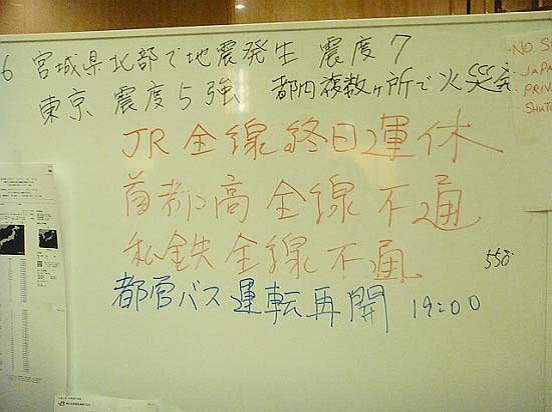 6 宮城県北部で地震発生 震度7
東京 震度5強 都内複数ヶ所で火災
JR 全線終日運休
首都高 全線 不通
私鉄全線不通
都営バス運転再開 19:00
-NO
-JAPA
PRIV
SHUT